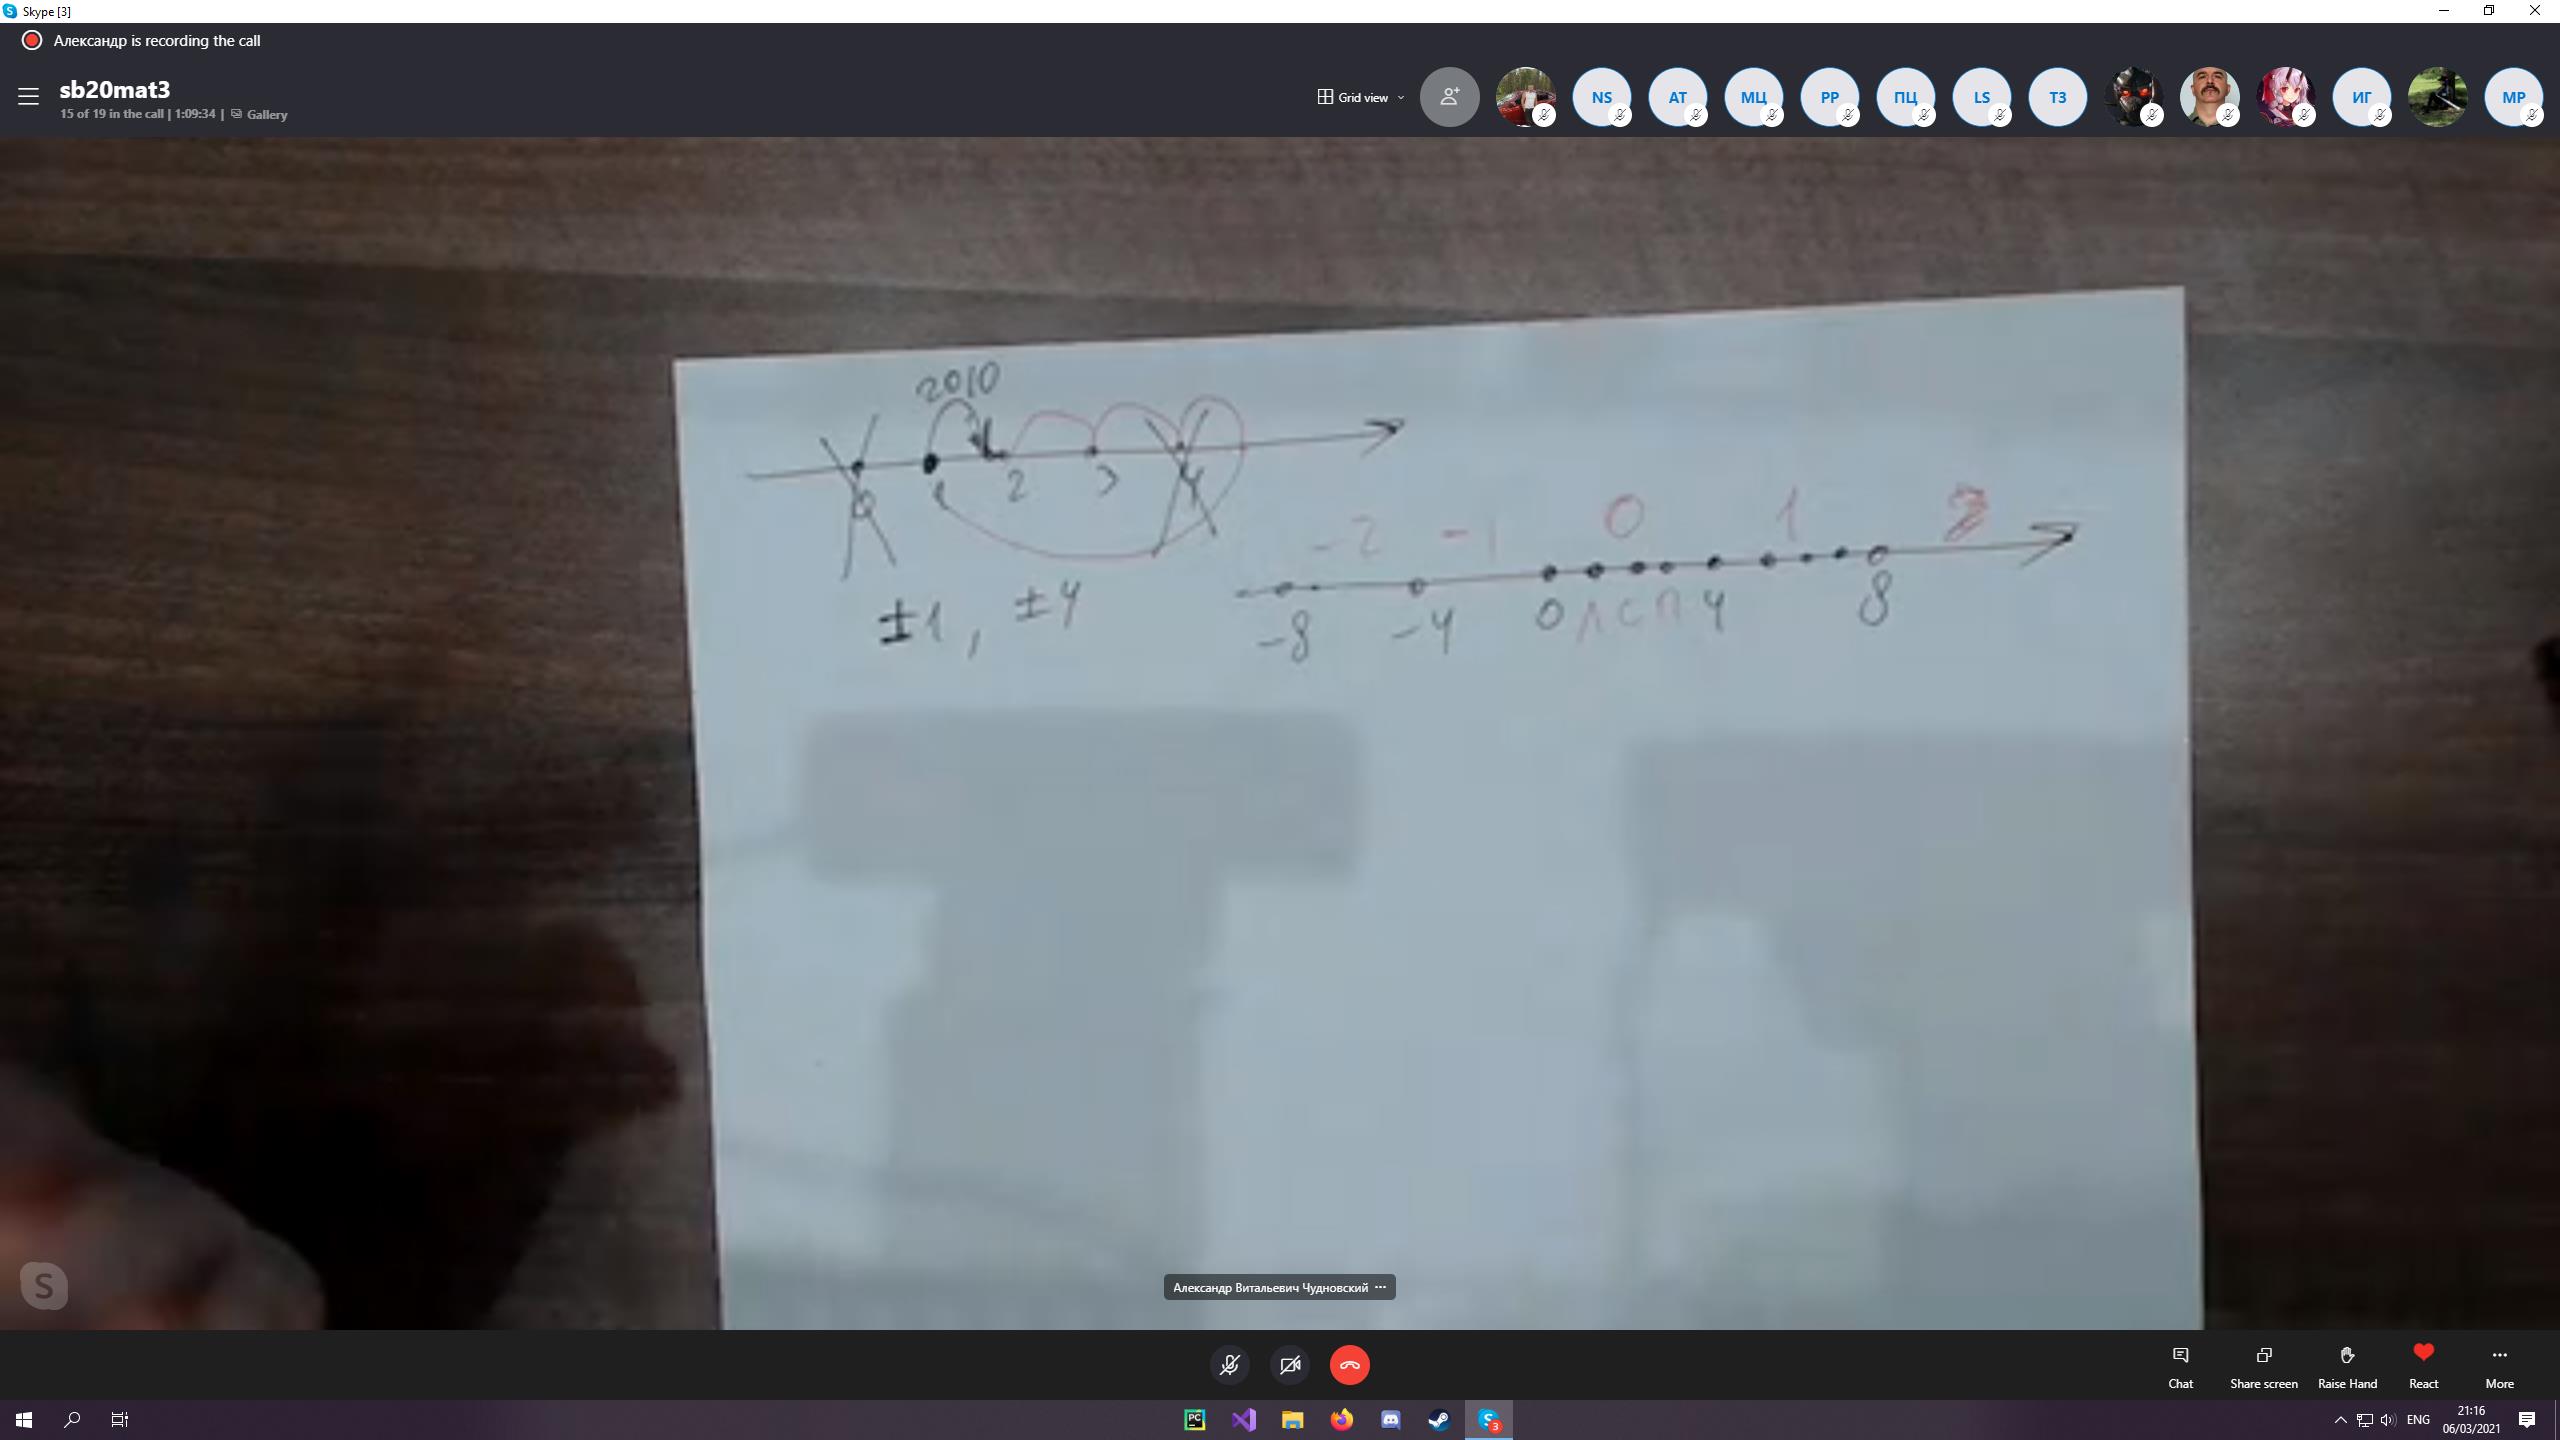 Skype [3]
Александр is recording the call
sb20mat3
15 of 19 in the call | 1:09:34 | Gallery
Grid view
NS AT МЦ PP ПЦ LS ТЗ ИГ МР
2010
1 2 3 4
±1, ±4
-2 -1 0 1
-8 -4 0 Л С П 4 8
Александр Витальевич Чудновский
Chat Share screen Raise Hand React More
PC
S 3
ENG
21:16
06/03/2021